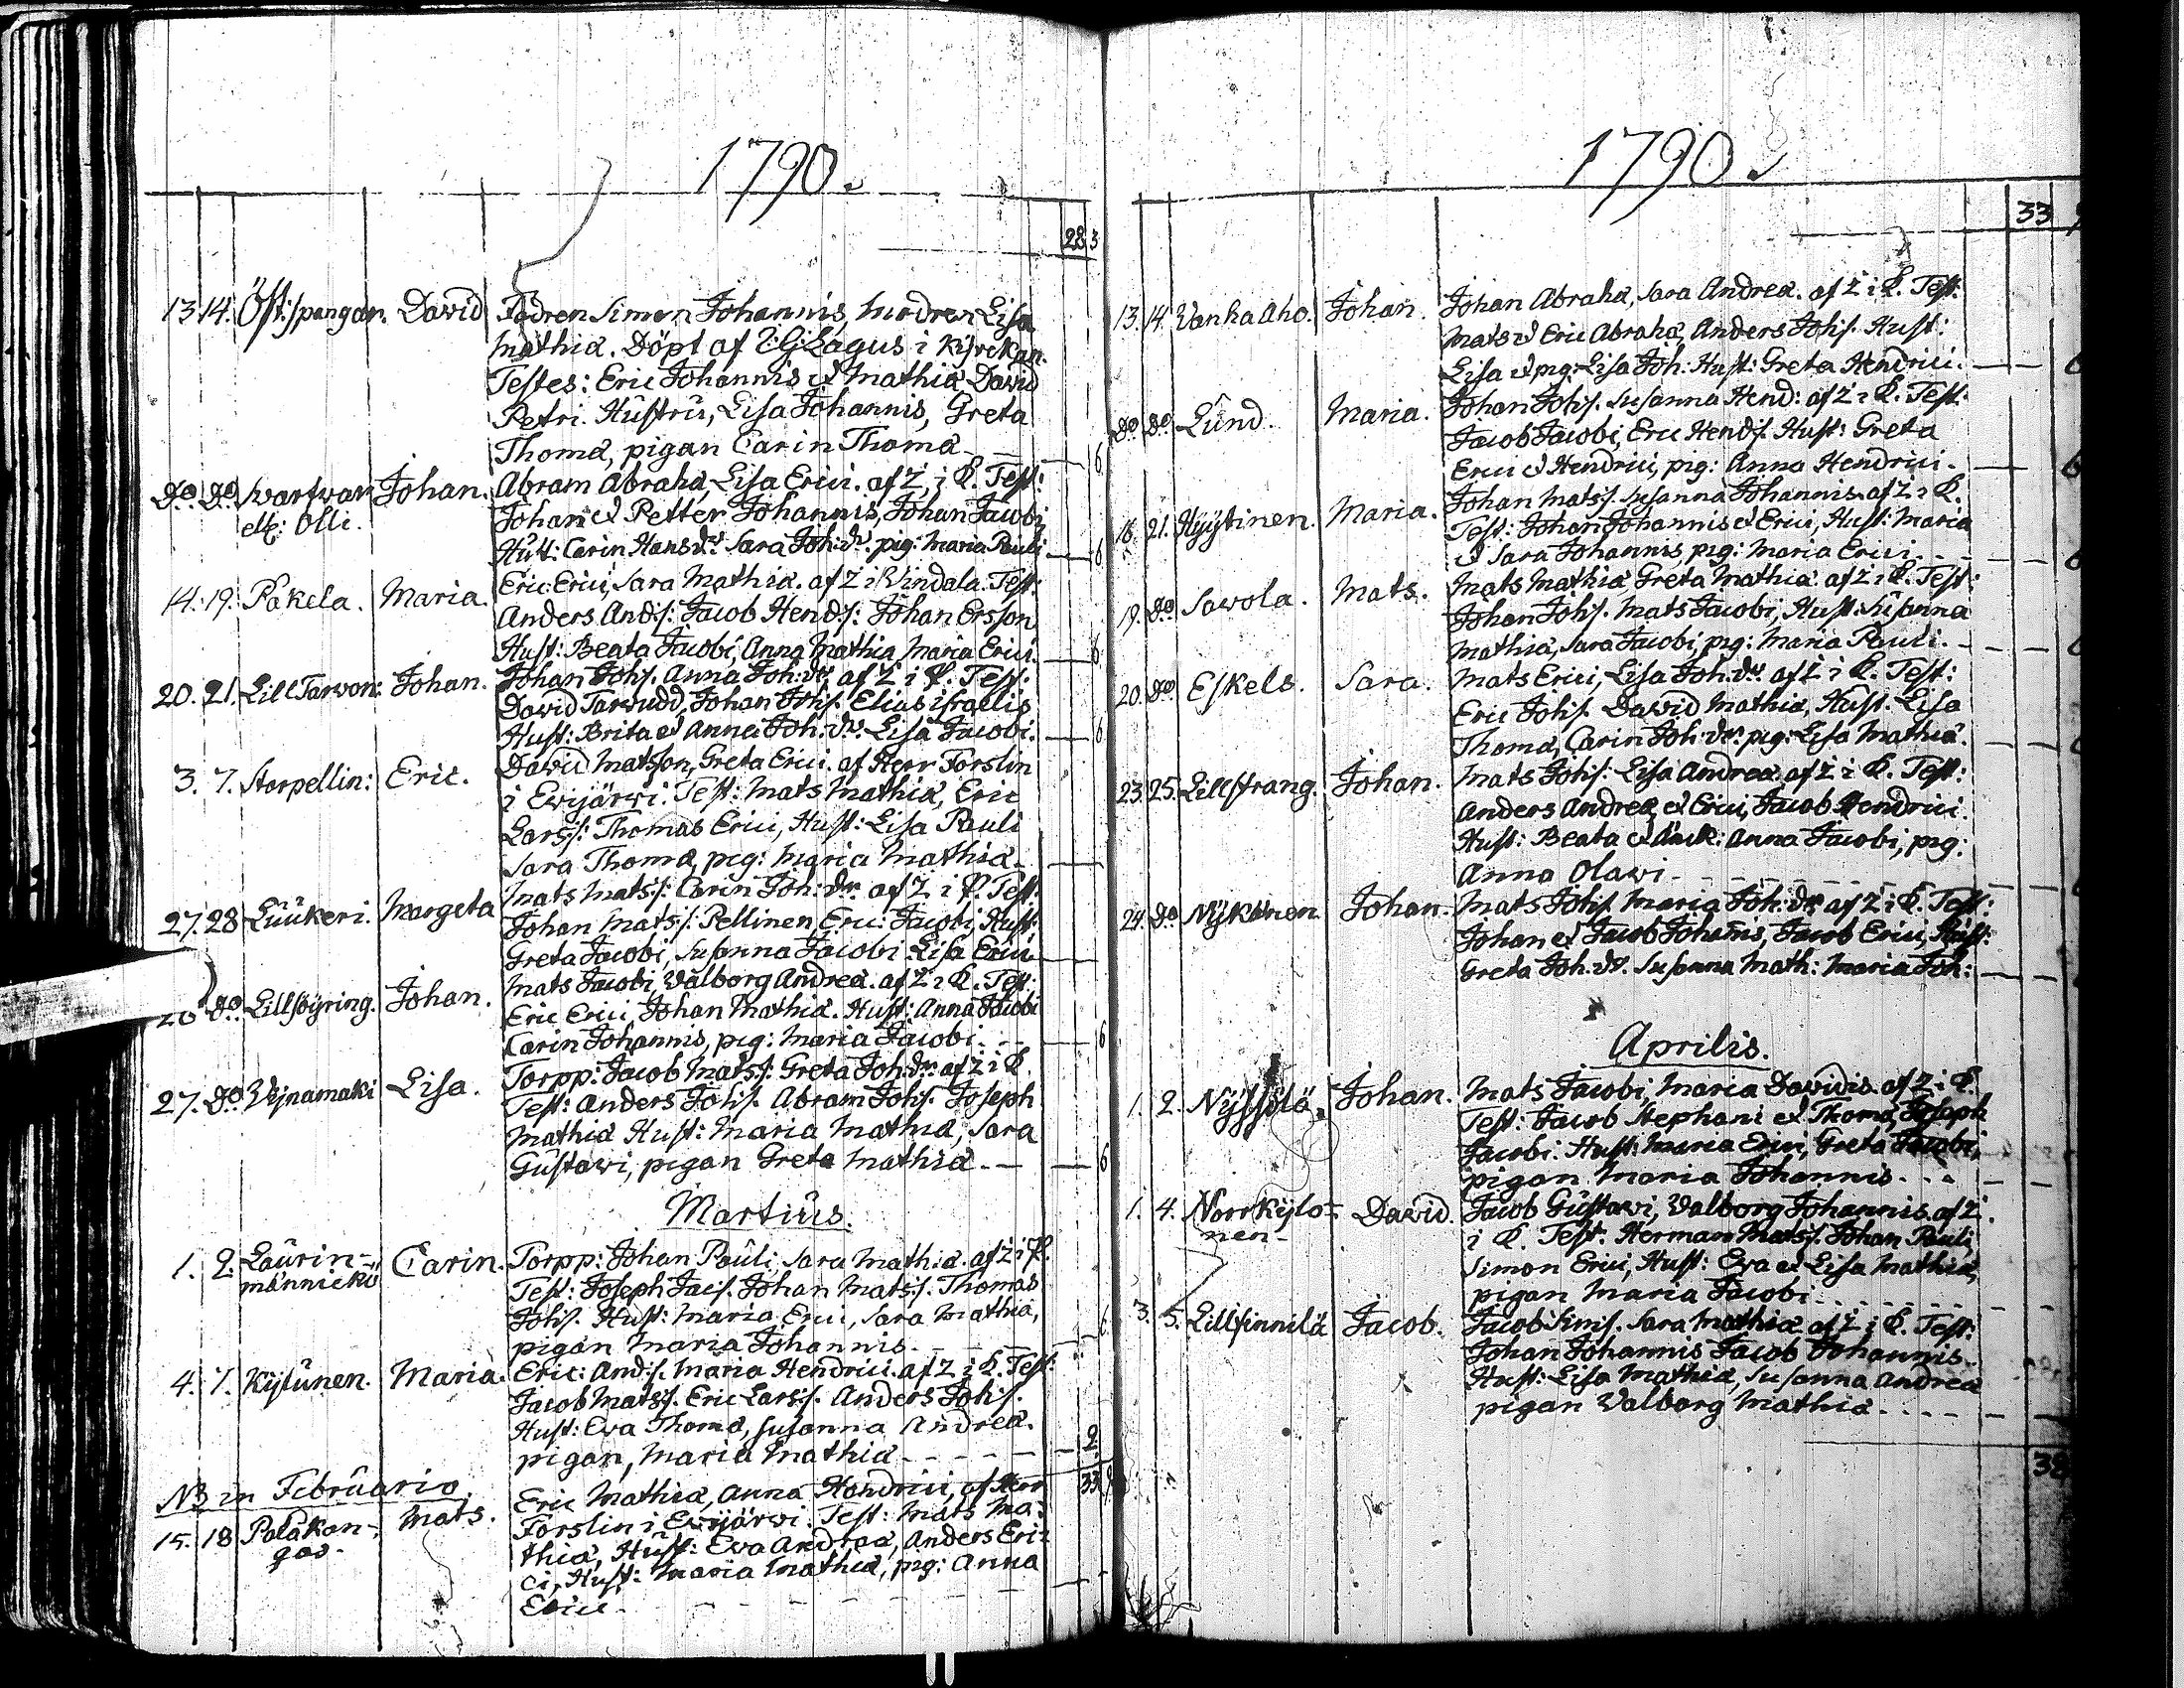 1790.
28 3
13. 14. Öst: spangar. David Fadren Simon Johannis, modren Lisa
Mathiæ. Döpt af E: G: Lagus i kyrckan.
Testes: Eric Johannis et Mathiæ David
Petri. Hustru, Lisa Johannis, Greta
Thomæ, pigan Carin Thomæ 6
Do. Do. Svartvar Johan. Abram Abrahæ, Lisa Erici. af Z. i K. Test:
ell: Olli. Johan et Petter Johannis, Johan Jacobi
Hust: Carin Hans dr. Sara Joh: dr. pig: Maria Pauli 6
14. 19. Pokela. Maria. Eric Erici, Sara Mathiæ. af Z i Vindala. Test:
Anders And:s: Jacob Hend:s: Johan Ersson
Hust: Beata Jacobi, Anna Mathiæ Maria Erici. 6
20. 21. Lill Tarvon: Johan. Johan Joh:s. Anna Joh: dr. af Z i K. Test:
David Tarvudd, Johan Joh:s. Elias Israelis
Hust: Brita et Anna Joh: dr. Lisa Jacobi. 6
3. 7. Storpellin: Eric. David Matsson, Greta Erici. af Herr Forslin
i Evijärvi. Test: Mats Mathiæ, Eric
Lars:s: Thomas Erici, Hust: Lisa Pauli
Sara Thomæ, pig: Maria Mathiæ
27. 28 Luukeri. Margeta Mats Mats:s: Carin Joh: dr. af Z i K. Test:
Johan Mats:s. Pellinen, Eric Jacobi, Hust:
Greta Jacobi, Susanna Jacobi Lisa Erici
Do. Lillsyring. Johan. Mats Jacobi, Valborg Andreæ. af Z i K. Test:
Eric Erici, Johan Mathiæ. Hust: Anna Jacobi
Carin Johannis, pig: Maria Jacobi. 6
27. Do. Vejnamaki Lisa. Torpp: Jacob Mats:s: Greta Joh: dr. af Z i K.
Test: Anders Joh:s. Abram Joh:s. Joseph
Mathiæ Hust: Maria Mathiæ, Sara
Gustavi, pigan Greta Mathiæ. 6
Martius.
1. 2. Laurin- Carin. Torpp: Johan Pauli, Sara Mathiæ. af Z i K.
männickö Test: Joseph Jac:s. Johan Mats:s. Thomas
Joh:s. Hust: Maria Erici, Sara Mathiæ,
pigan Maria Johannis. 6
4. 7. Kytunen. Maria. Eric And:s. Maria Hendrici. af Z i K. Test:
Jacob Mats:s. Eric Lars:s. Anders Joh:s.
Hust: Eva Thomæ, Susanna Andreæ.
pigan, Maria Mathiæ 2
33
NB in Februario.
15. 18 Polakan- Mats. Eric Mathiæ, Anna Hendrici, af Herr
gas. Forslin i Evijärvi. Test: Mats Ma-
thiæ, Hust: Eva Andreæ, Anders Eri-
ci, Hust: Maria Mathiæ, pig: Anna
Erici
1790.
33
13. 14. Vanha Aho. Johan. Johan Abrahæ, Sara Andreæ. af Z i K. Test:
Mats et Eric Abrahæ, Anders Joh:s. Hust:
Lisa et pig: Lisa Joh: Hust: Greta Hendrici. 6
Do. Do. Lund. Maria. Johan Joh:s. Susanna Hend: af Z i K. Test:
Jacob Jacobi, Eric Hend:s. Hust: Greta
Erici et Hendrici, pig: Anna Hendrici. 6
18. 21. Hyytinen. Maria. Johan Mats:s. Susanna Johannis. af Z i K.
Test: Johan Johannis et Erici, Hust: Maria
et Sara Johannis, pig: Maria Erici 6
19. Do. Savola. Mats. Mats Mathiæ Greta Mathiæ. af Z i K. Test:
Johan Joh:s. Mats Jacobi, Hust: Susanna
Mathiæ, Sara Jacobi, pig: Maria Pauli. 6
20. Do. Eskels. Sara. Mats Erici, Lisa Joh: dr. af Z i K. Test:
Eric Joh:s. David Mathiæ, Hust. Lisa
Thomæ, Carin Joh: dr. pig: Lisa Mathiæ.
23. 25. Lillstrang. Johan. Mats Joh:s: Lisa Andreæ af Z i K. Test:
Anders Andreæ et Erici, Jacob Hendrici.
Hust: Beata et Anna Jacobi, pig:
Anna Olavi
24. Do Nykänen. Johan. Mats Joh:s. Maria Joh: dr. af Z i K. Test:
Johan et Jacob Johannis, Jacob Erici, Hust:
Greta Joh: dr. Susanna Math: Maria Joh:
Aprilis.
1. 2. Nyssölä. Johan. Mats Jacobi, Maria Davidis. af Z i K.
Test: Jacob Stephani et Thomæ, Joseph
Jacobi. Hust: Maria Erici, Greta Jacobi,
pigan Maria Johannis.
1. 4. Norrkylo- David. Jacob Gustavi, Valborg Johannis. af Z.
nen- i K. Test: Herman Mats:s. Johan Pauli,
Simon Erici, Hust: Eva et Lisa Mathiæ,
pigan Maria Jacobi
3. 5. Lillsinnilä Jacob. Jacob Sim:s. Sara Mathiæ af Z i K. Test:
Johan Johannis Jacob Johannis.
Hust: Lisa Mathiæ, Susanna Andreæ
pigan Valborg Mathiæ
38